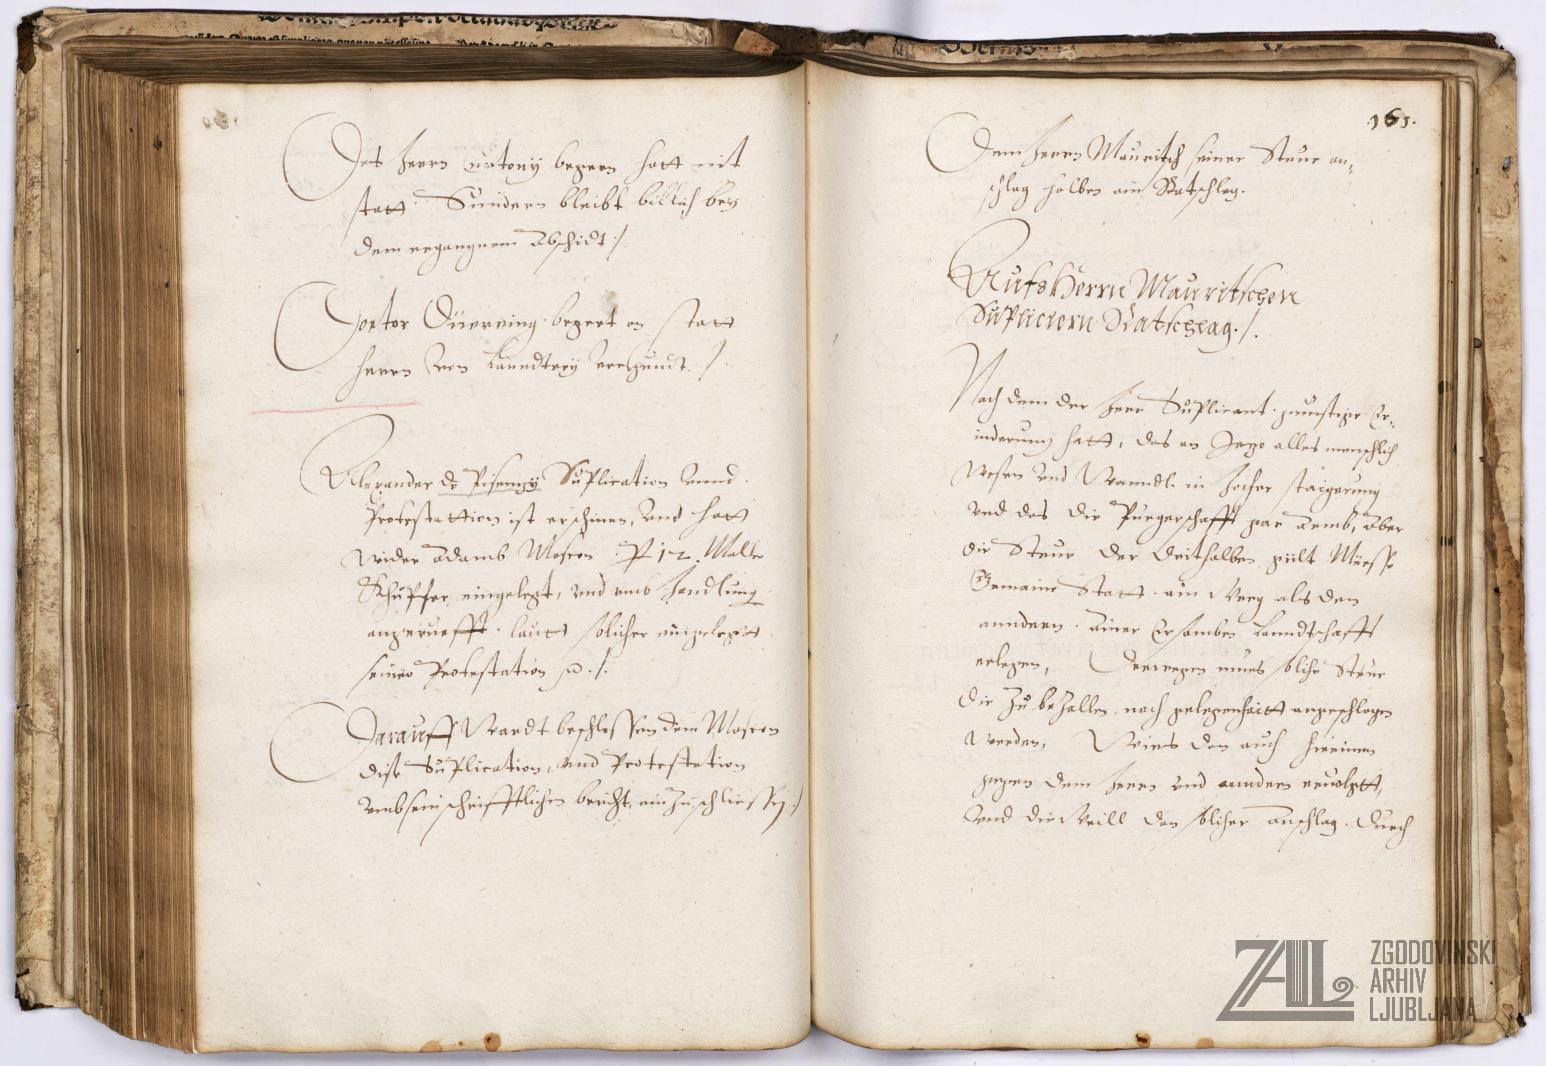 Des herrn Curtony begern hatt nit
statt. Sundern bleibt billich bey
dem ergangnem Abschidt ./.
Doctor Düerring begert an statt
herrn von Lanndtrij
Alexander de Pisenzy Suplication vnnd
Protestattion ist erschinen, vnd hatt
wider Adamb Moscon 12. Malter
Khupfer eingelegt, vnd vmb handlung
angeruefft. lautt solicher eingelegtt
seiner Protestation ./.
Darauff Wardt beschlossen dem Moscon
dise Suplication, vnd Protestation
vmb sein schrifftlichen bericht, einzuschliessen ./.
161.
Dem herrn Mauritsch seiner Steur an-
schlag halben ain Ratschlag.
Aufs Herrn Mauritschen
Supliciern Ratschlag ./.
Nach dem der herr Suplicant gunstige Er-
inderung hatt, das an Jezo alles menschlich
Wesen vnd Wanndl in hocher staigerung
vnd das die Purgerschafft gar Armb, Aber
die Steur der Geithalben Müesse
Gemaine Statt ain Weeg als den
anndern. Ainer Ersamben Lanndtschafft
erlegen, Derwegen mues soliche Steur
die zu bezallen nach gelegenhaitt angeschlagen
werden, Wies dan auch hierinnen
gegen dem herrn vnd andern ervolgtt,
Vnd die Weill dan solicher Anschlag durch
ZAL
ZGODOVINSKI
ARHIV
LJUBLJANA